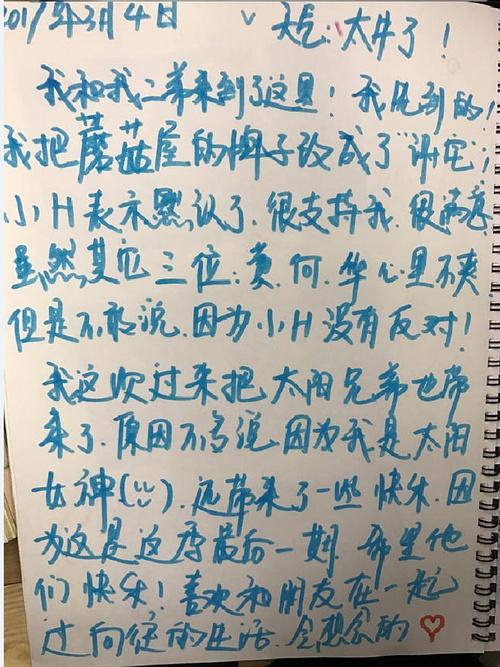 2017年3月4日 天气:太冷了!
我和我二弟来到了这里!我先到的!
我把蘑菇屋的牌子改成了“谢宅”!
小H表示默认了.很支持我.很满意
虽然其他三位.黄.何.华心里不爽
但是不敢说.因为小H没有反对!
我这次过来把太阳兄弟也带
来了.原因不多说.因为我是太阳
女神(  ).还带来了一些快乐.因
为这是这季最后一期.希望他
们快乐!喜欢和朋友在一起
过向往的生活.会想念的